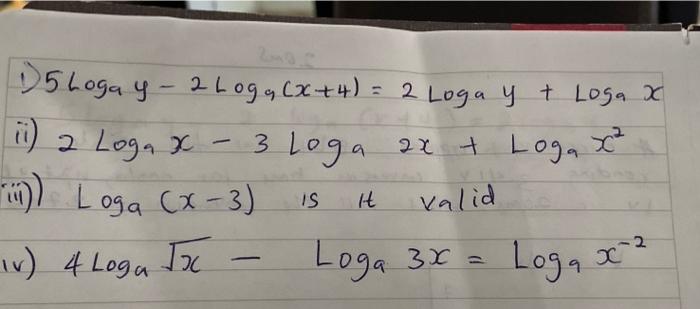 i) 5 Logₐ y - 2 Logₐ (x+4) = 2 Logₐ y + Logₐ x
ii) 2 Logₐ x - 3 Logₐ 2x + Logₐ x²
iii) Logₐ (x-3) is it valid
iv) 4 Logₐ √x - Logₐ 3x = Logₐ x⁻²